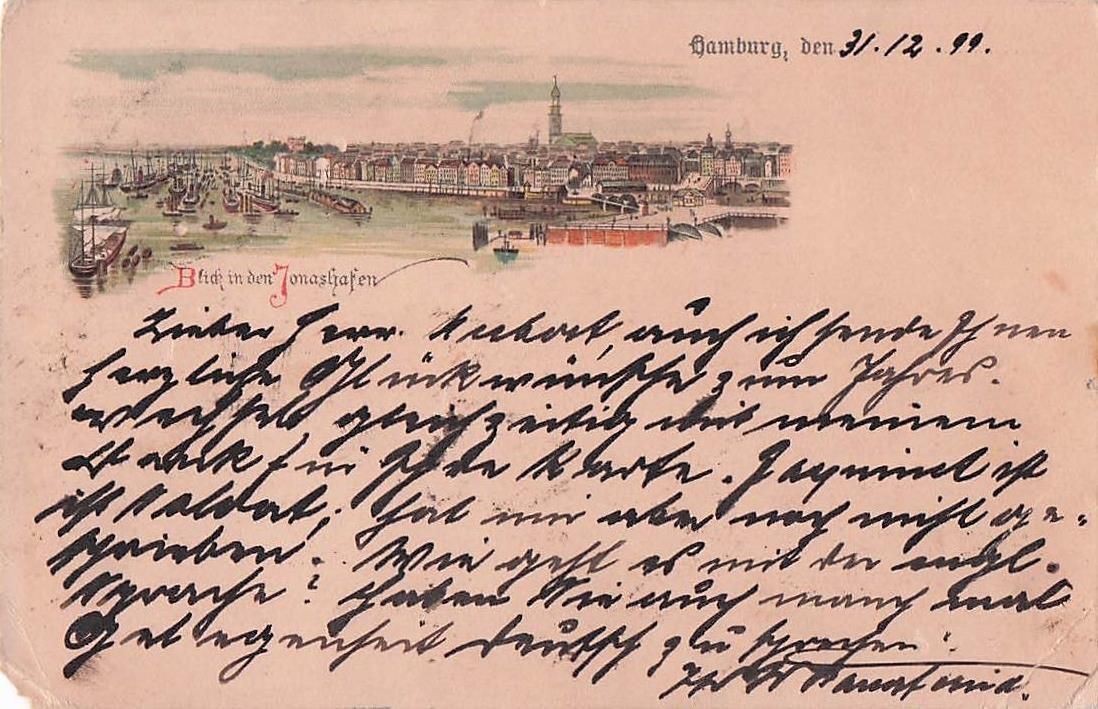 Hamburg, den 31.12.99.
Blick in den Jonashafen
Lieber Herr auch ich sende Ihnen
herzliche Glückwünsche zum Jahres-
wechsel gleichzeitig mit meinem
Dank für Ihre Karte. ist
ist Soldat, hat mir aber noch nicht ge-
schrieben. Wie geht es mit der engl.
Sprache? Haben Sie auch manch mal
Gelegenheit deutsch zu sprechen?
Ihr